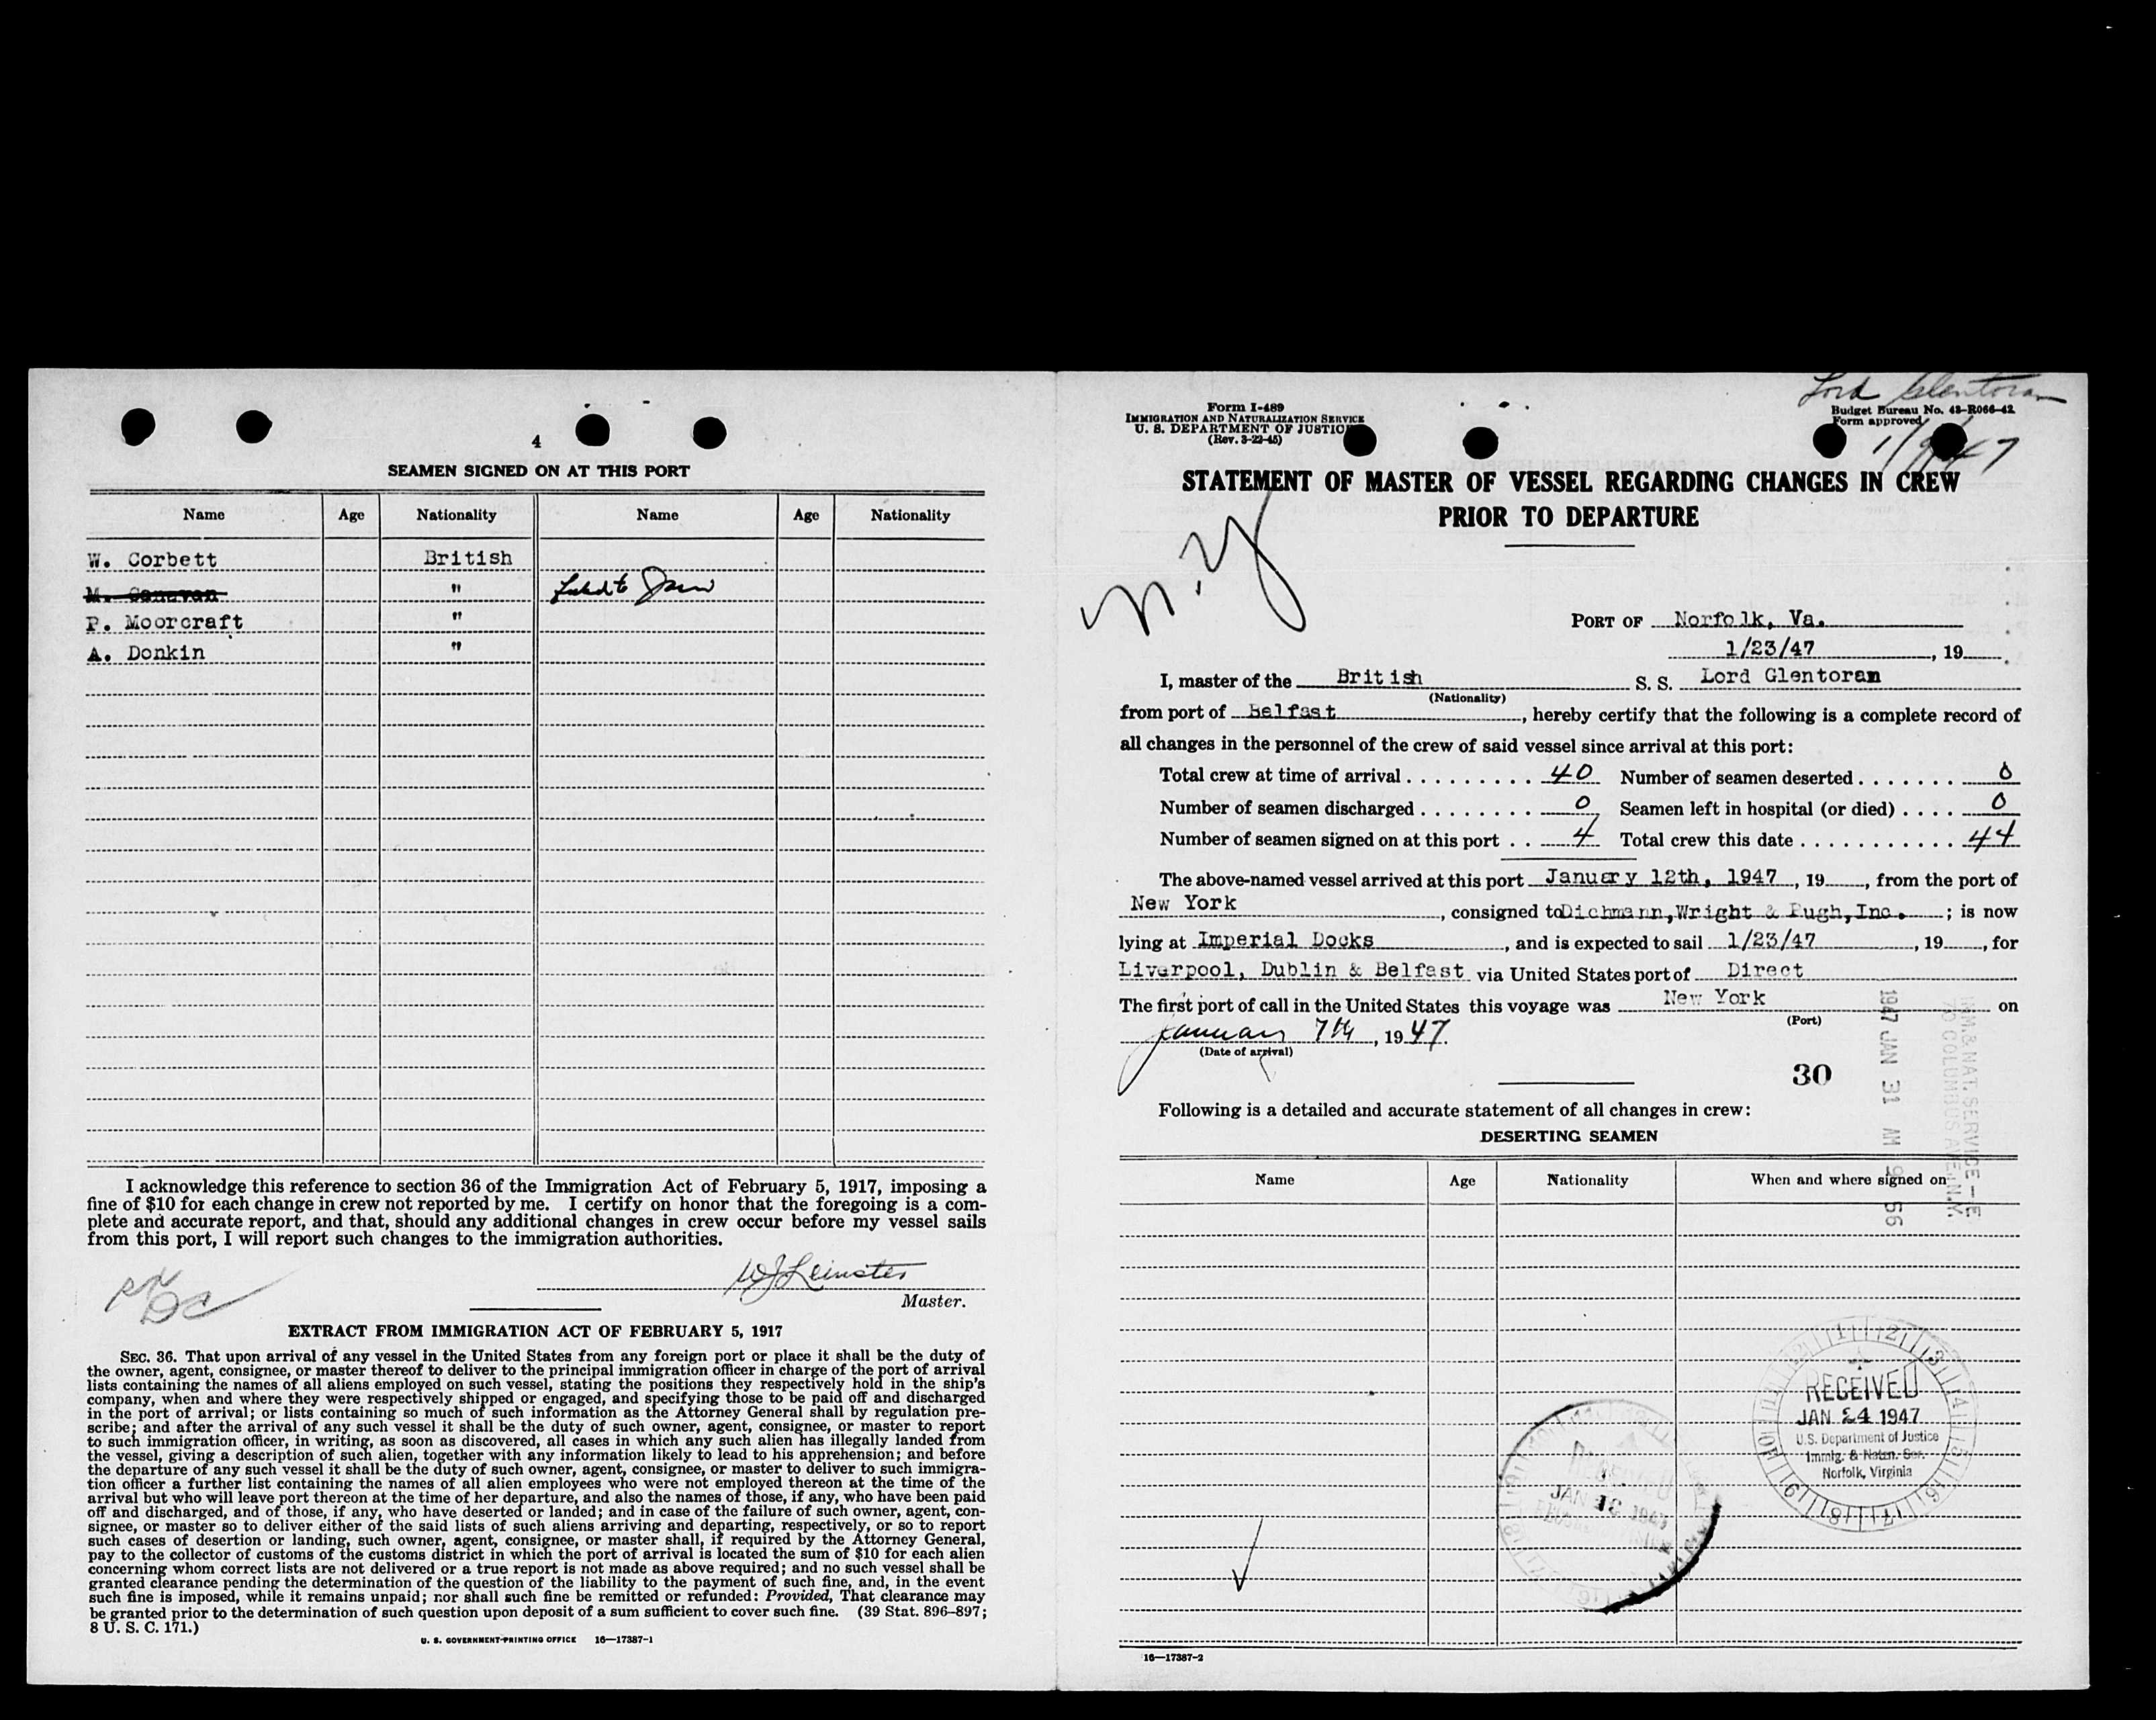 4
SEAMEN SIGNED ON AT THIS PORT
Name Age Nationality Name Age Nationality
W. Corbett British
M. Canavan " Failed to Join
P. Moorcraft "
A. Donkin "
I acknowledge this reference to section 36 of the Immigration Act of February 5, 1917, imposing a
fine of $10 for each change in crew not reported by me. I certify on honor that the foregoing is a com-
plete and accurate report, and that, should any additional changes in crew occur before my vessel sails
from this port, I will report such changes to the immigration authorities.
WJ Leinster
Master.
EXTRACT FROM IMMIGRATION ACT OF FEBRUARY 5, 1917
SEC. 36. That upon arrival of any vessel in the United States from any foreign port or place it shall be the duty of
the owner, agent, consignee, or master thereof to deliver to the principal immigration officer in charge of the port of arrival
lists containing the names of all aliens employed on such vessel, stating the positions they respectively hold in the ship's
company, when and where they were respectively shipped or engaged, and specifying those to be paid off and discharged
in the port of arrival; or lists containing so much of such information as the Attorney General shall by regulation pre-
scribe; and after the arrival of any such vessel it shall be the duty of such owner, agent, consignee, or master to report
to such immigration officer, in writing, as soon as discovered, all cases in which any such alien has illegally landed from
the vessel, giving a description of such alien, together with any information likely to lead to his apprehension; and before
the departure of any such vessel it shall be the duty of such owner, agent, consignee, or master to deliver to such immigra-
tion officer a further list containing the names of all alien employees who were not employed thereon at the time of the
arrival but who will leave port thereon at the time of her departure, and also the names of those, if any, who have been paid
off and discharged, and of those, if any, who have deserted or landed; and in case of the failure of such owner, agent, con-
signee, or master so to deliver either of the said lists of such aliens arriving and departing, respectively, or so to report
such cases of desertion or landing, such owner, agent, consignee, or master shall, if required by the Attorney General,
pay to the collector of customs of the customs district in which the port of arrival is located the sum of $10 for each alien
concerning whom correct lists are not delivered or a true report is not made as above required; and no such vessel shall be
granted clearance pending the determination of the question of the liability to the payment of such fine, and, in the event
such fine is imposed, while it remains unpaid; nor shall such fine be remitted or refunded: Provided, That clearance may
be granted prior to the determination of such question upon deposit of a sum sufficient to cover such fine. (39 Stat. 896–897;
8 U. S. C. 171.)
U. S. GOVERNMENT PRINTING OFFICE 16—17387-1
Lord Glentoran
Form I-489
IMMIGRATION AND NATURALIZATION SERVICE
U. S. DEPARTMENT OF JUSTICE
(Rev. 3-22-45)
Budget Bureau No. 43-R066-42
Form approved
STATEMENT OF MASTER OF VESSEL REGARDING CHANGES IN CREW
PRIOR TO DEPARTURE
N.Y
PORT OF Norfolk, Va.
1/23/47, 19
I, master of the British S. S. Lord Glentoran
(Nationality)
from port of Belfast, hereby certify that the following is a complete record of
all changes in the personnel of the crew of said vessel since arrival at this port:
Total crew at time of arrival . . . . . . . . . 40 Number of seamen deserted . . . . . . . 0
Number of seamen discharged . . . . . . . . 0 Seamen left in hospital (or died) . . . . 0
Number of seamen signed on at this port . . 4 Total crew this date . . . . . . . . . . . . 44
The above-named vessel arrived at this port January 12th, 1947, 19, from the port of
New York, consigned to Dichmann, Wright & Pugh, Inc.; is now
lying at Imperial Docks, and is expected to sail 1/23/47, 19, for
Liverpool, Dublin & Belfast via United States port of Direct
The first port of call in the United States this voyage was New York on
(Port)
January 7th, 1947.
(Date of arrival)
30
IMM. & NAT. SERVICE – E
70 COLUMBUS AVE. N.Y.
1947 JAN 31 AM 9 56
Following is a detailed and accurate statement of all changes in crew:
DESERTING SEAMEN
Name Age Nationality When and where signed on
RECEIVED
JAN 24 1947
U.S. Department of Justice
Immig. & Natzn. Ser.
Norfolk, Virginia
16—17387-2